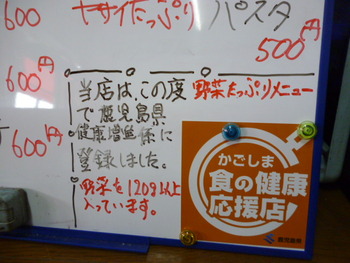 600
ヤサイたっぷりパスタ
500円
600円
600円
当店は、この度
野菜たっぷりメニュー
で鹿児島県
健康増進係に
登録しました。
野菜を120g以上
入っています。
かごしま
食の健康
応援店
鹿児島県